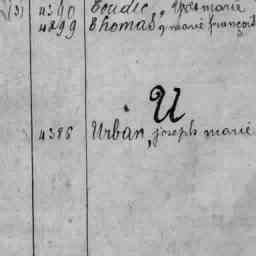 (3) 4390 Toudic, Yves marie
4299 Thomas, marie françois
U
4386 Urban, joseph marie